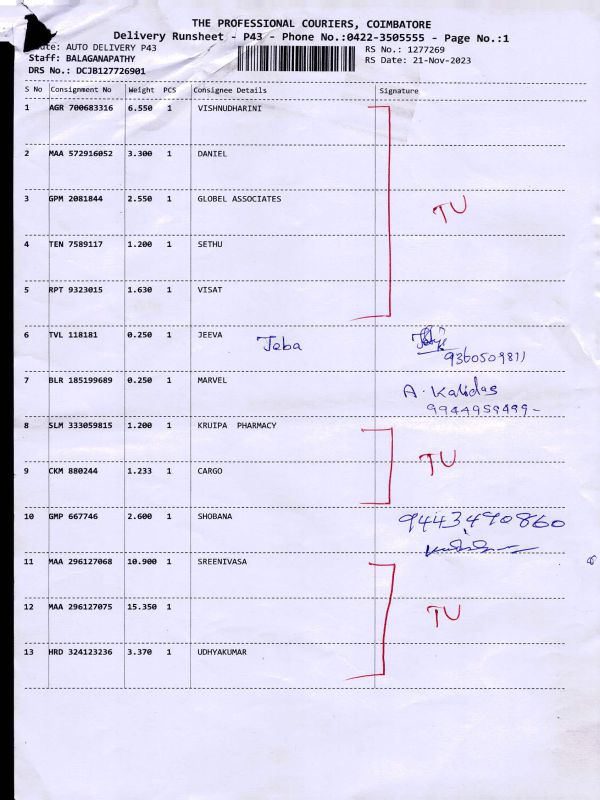 THE PROFESSIONAL COURIERS, COIMBATORE
Delivery Runsheet - P43 - Phone No.:0422-3505555 - Page No.:1
Route: AUTO DELIVERY P43 RS No.: 1277269
Staff: BALAGANAPATHY RS Date: 21-Nov-2023
DRS No.: DCJB127726901
S No Consignment No Weight PCS Consignee Details Signature
1 AGR 700683316 6.550 1 VISHNUDHARINI
2 MAA 572916052 3.300 1 DANIEL
3 GPM 2081844 2.550 1 GLOBEL ASSOCIATES TU
4 TEN 7589117 1.200 1 SETHU
5 RPT 9323015 1.630 1 VISAT
6 TVL 118181 0.250 1 JEEVA Jeba
9360509811
7 BLR 185199689 0.250 1 MARVEL A. Kalidas
9944959499-
8 SLM 333059815 1.200 1 KRUIPA PHARMACY TU
9 CKM 880244 1.233 1 CARGO
10 GMP 667746 2.600 1 SHOBANA 9443490860
11 MAA 296127068 10.900 1 SREENIVASA
12 MAA 296127075 15.350 1 TU
13 HRD 324123236 3.370 1 UDHYAKUMAR